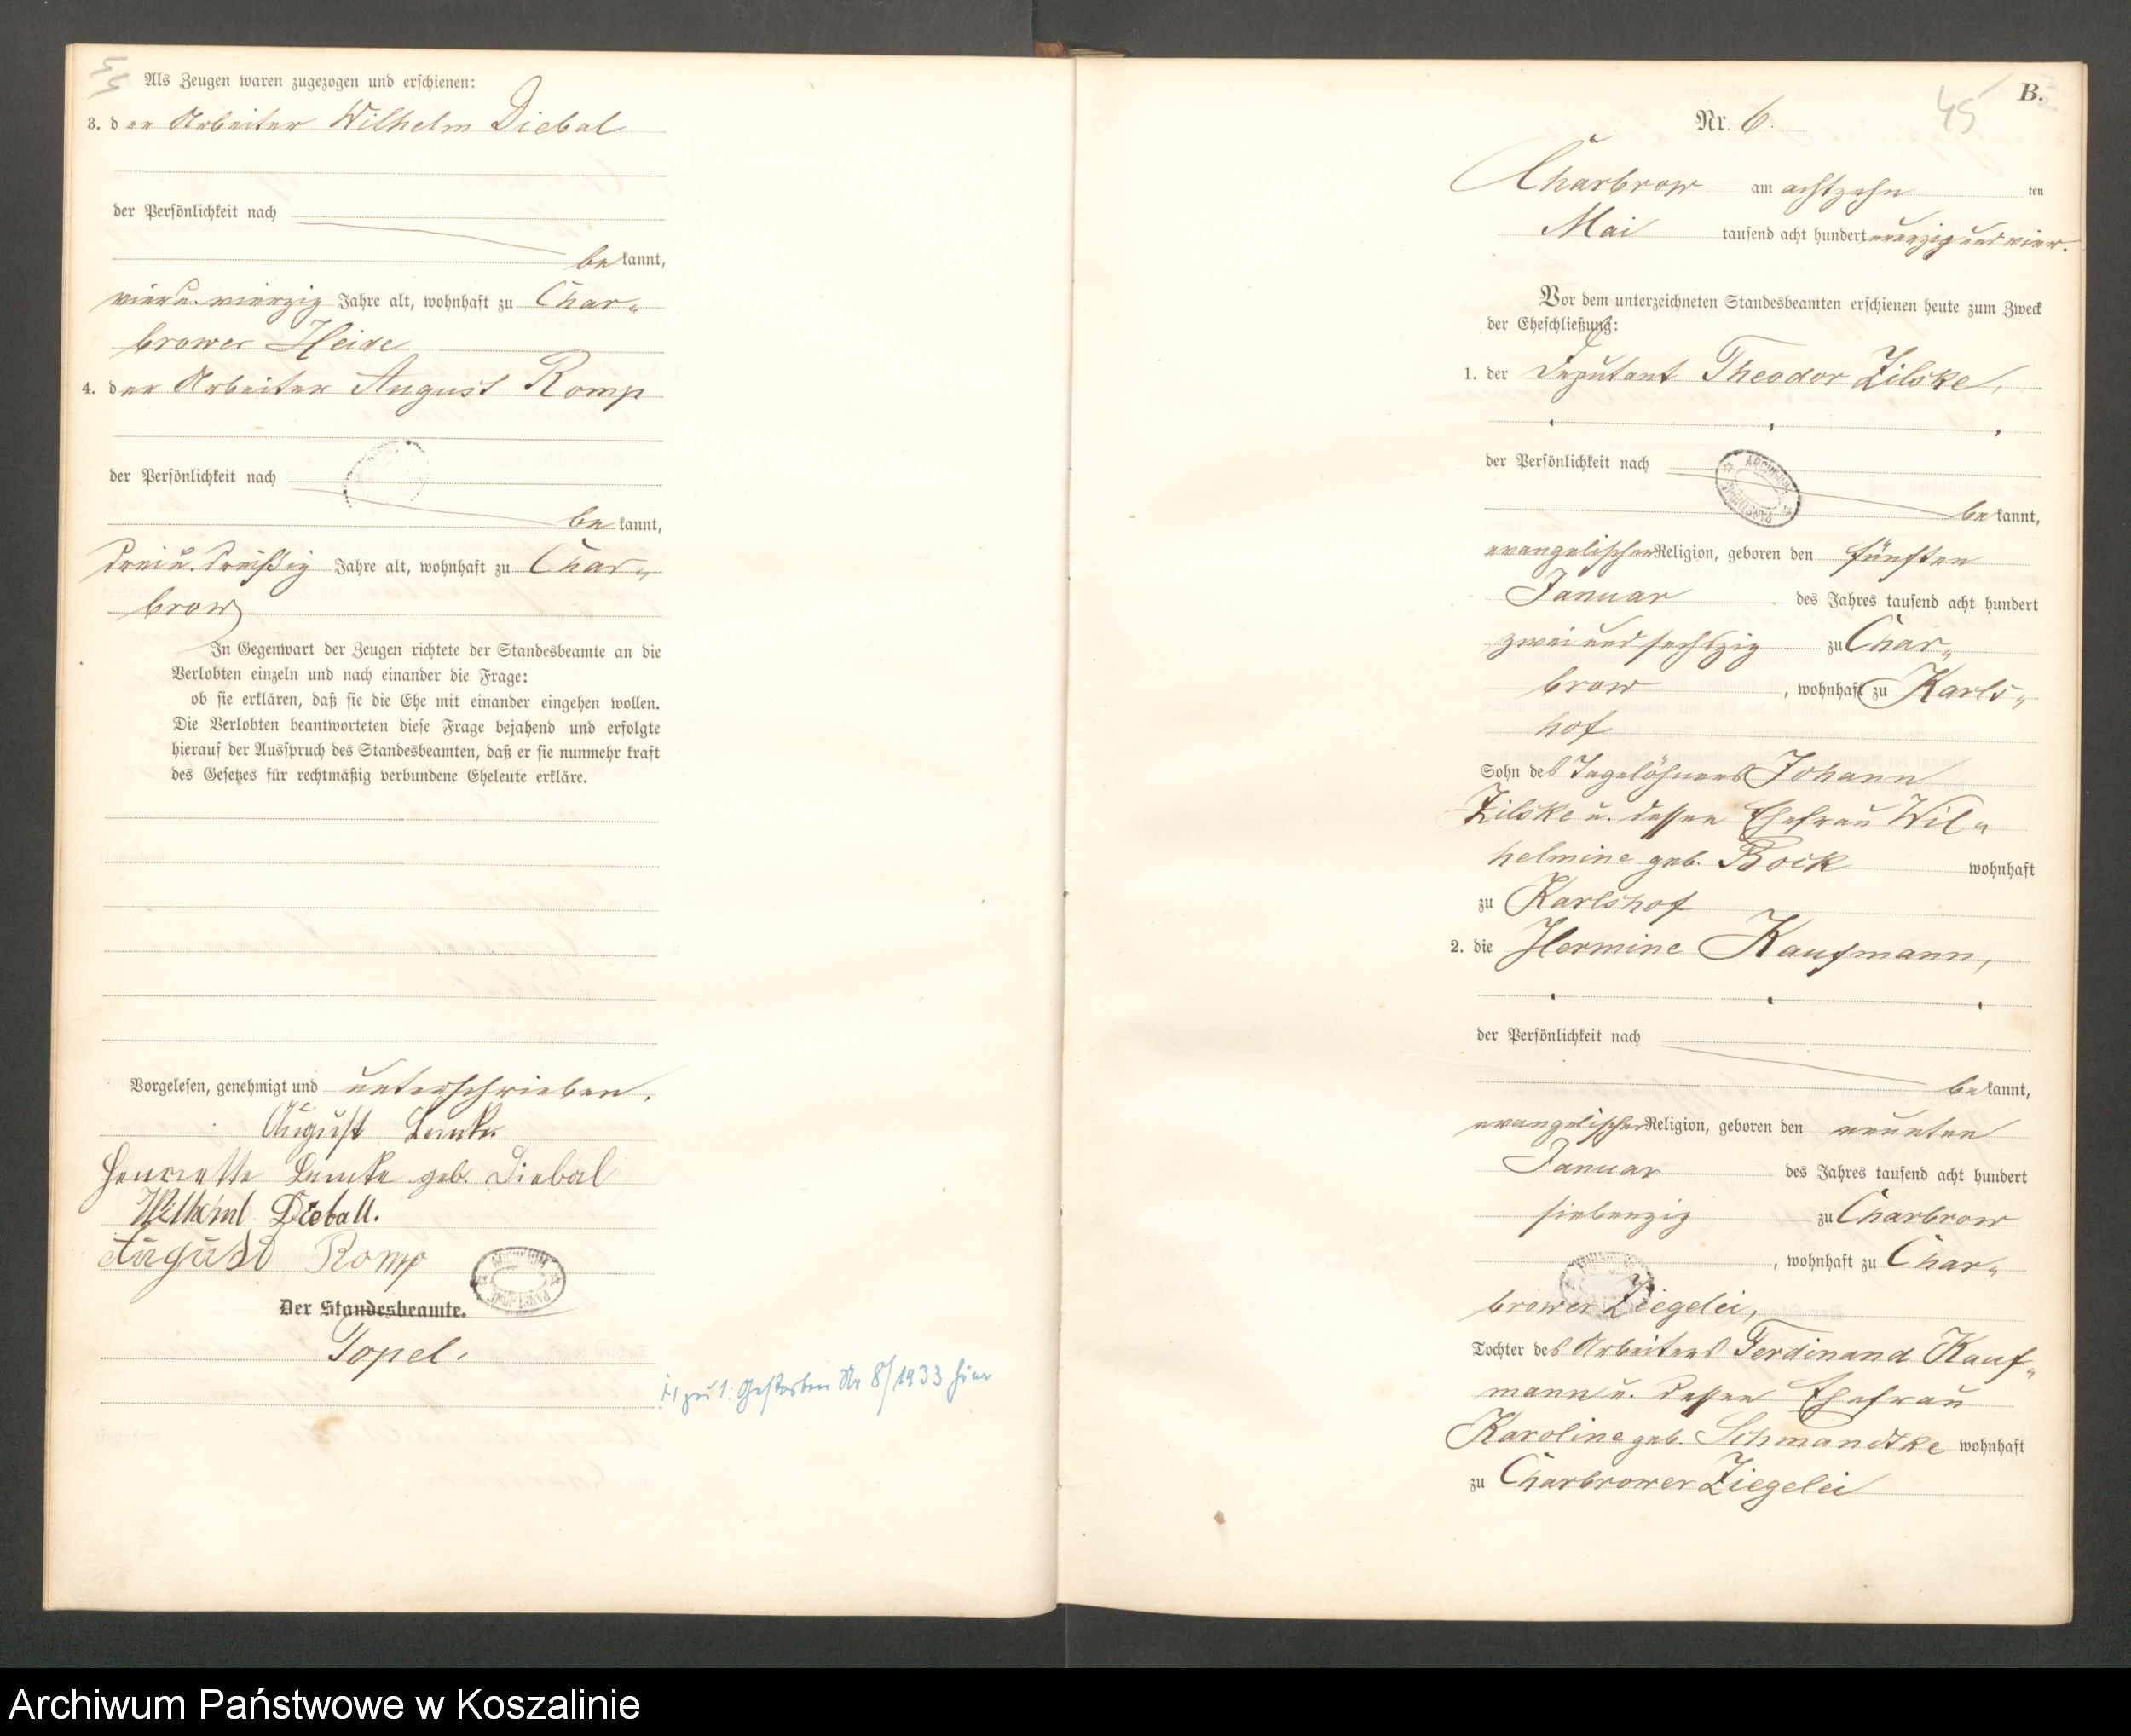 Als Zeugen waren zugezogen und erschienen:
3. der Arbeiter Wilhelm Diebal
der Persönlichkeit nach
bekannt,
vier u. vierzig Jahre alt, wohnhaft zu Char-
brower Heide
4. der Arbeiter August Romp
der Persönlichkeit nach
bekannt,
drei u. dreißig Jahre alt, wohnhaft zu Char-
brow
In Gegenwart der Zeugen richtete der Standesbeamte an die
Verlobten einzeln und nach einander die Frage:
ob sie erklären, daß sie die Ehe mit einander eingehen wollen.
Die Verlobten beantworteten diese Frage bejahend und erfolgte
hierauf der Ausspruch des Standesbeamten, daß er sie nunmehr kraft
des Gesetzes für rechtmäßig verbundene Eheleute erkläre.
Vorgelesen, genehmigt und unterschrieben.
August Lemke
Henriette Lemke geb. Diebal
Wilhelm Dieball.
August Romp
ARCHIWUM PAŃSTWOWE
Der Standesbeamte.
Topel.
zu 1: Gestorben Nr 8/1933 hier
45
B.
Nr. 6.
Charbrow am achtzehnten
Mai tausend acht hundert neunzig und vier.
Vor dem unterzeichneten Standesbeamten erschienen heute zum Zweck
der Eheschließung:
1. der Deputant Theodor Zilske,
der Persönlichkeit nach
ARCHIWUM PAŃSTWOWE
bekannt,
evangelischer Religion, geboren den fünften
Januar des Jahres tausend acht hundert
zwei und sechszig zu Char-
brow, wohnhaft zu Karls-
hof
Sohn des Tagelöhners Johann
Zilske u. dessen Ehefrau Wil-
helmine geb. Bock wohnhaft
zu Karlshof
2. die Hermine Kaufmann,
der Persönlichkeit nach
bekannt,
evangelischer Religion, geboren den neunten
Januar des Jahres tausend acht hundert
siebenzig zu Charbrow
, wohnhaft zu Char-
brower Ziegelei,
Tochter des Arbeiters Ferdinand Kauf-
mann u. dessen Ehefrau
Karoline geb. Schmandtke wohnhaft
zu Charbrower Ziegelei
Archiwum Państwowe w Koszalinie